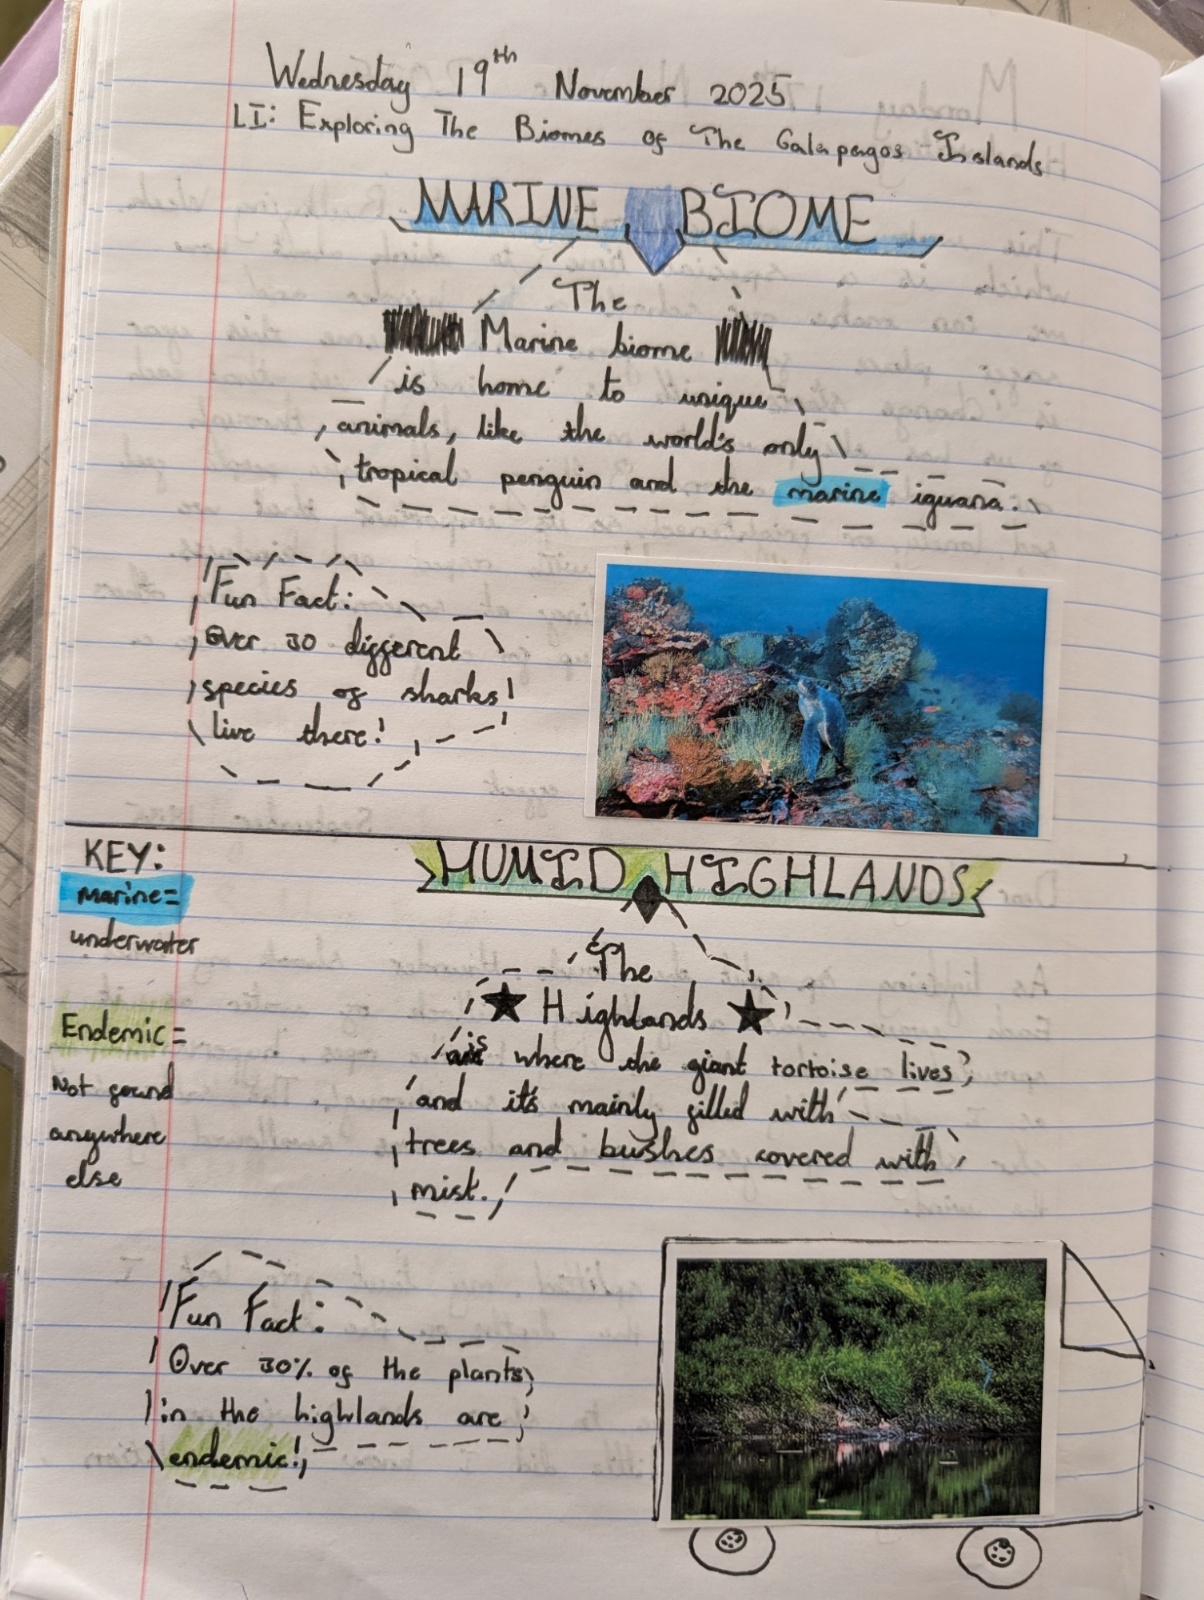 Wednesday 19th November 2025
LI: Exploring The Biomes of The Galapagos Islands
MARINE BIOME
The
Marine biome
is home to unique
animals, like the world's only
tropical penguin and the marine iguana.
Fun Fact:
Over 30 different
species of sharks
live there!
KEY:
marine=
underwater
Endemic=
Not found
anywhere
else
HUMID HIGHLANDS
The
Highlands
is where the giant tortoise lives
and it's mainly filled with
trees and bushes covered with
mist.
Fun Fact:
Over 30% of the plants
in the highlands are
endemic!